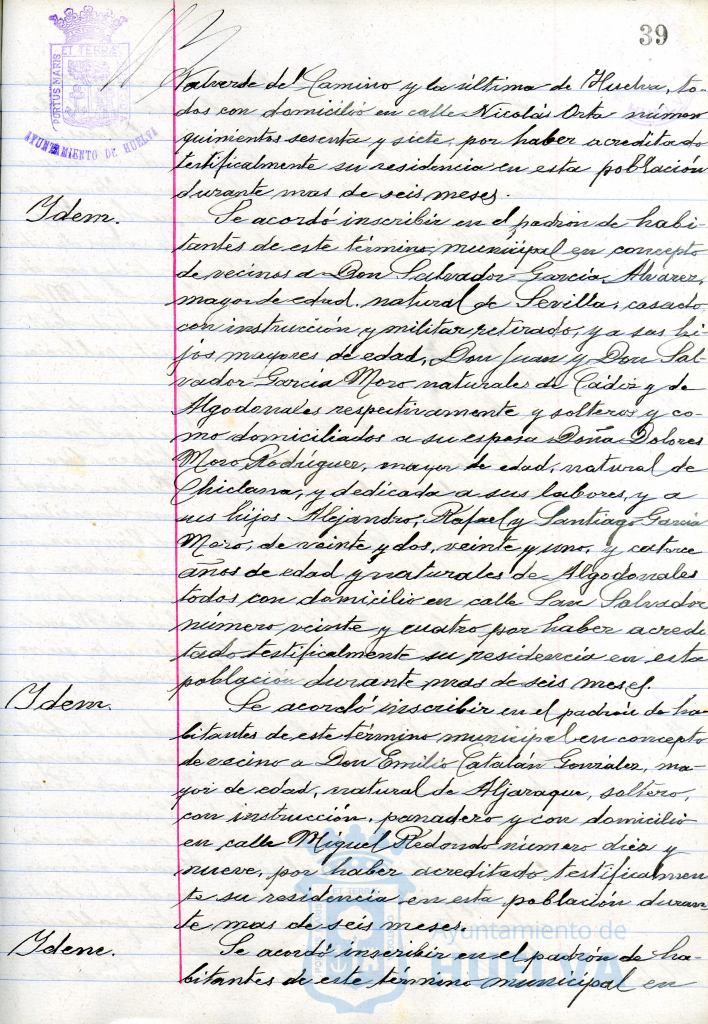 39
PORTUS MARIS
ET TERRÆ
AYUNTAMIENTO DE HUELVA
Valverde del Camino y la última de Huelva, to-
dos con domicilio en calle Nicolás Orta número
quinientos sesenta y siete, por haber acreditado
testificalmente su residencia en esta población
durante mas de seis meses.
Idem.
Se acordó inscribir en el padrón de habi-
tantes de este término municipal en concepto
de vecinos a Don Salvador García Alvarez,
mayor de edad, natural de Sevilla, casado
con instrucción y militar retirado, y a sus hi-
jos mayores de edad, Don Juan y Don Sal-
vador García Moro naturales de Cádiz y de
Algodonales respectivamente y solteros y co-
mo domiciliados a su esposa Doña Dolores
Moro Rodríguez, mayor de edad, natural de
Chiclana, y dedicada a sus labores, y a
sus hijos Alejandro, Rafael y Santiago García
Moro, de veinte y dos, veinte y uno, y catorce
años de edad y naturales de Algodonales
todos con domicilio en calle San Salvador
número veinte y cuatro por haber acredi
tado testificalmente su residencia en esta
población durante mas de seis meses.
Idem.
Se acordó inscribir en el padrón de ha-
bitantes de este término municipal en concepto
de vecino a Don Emilio Catalán González, ma-
yor de edad, natural de Aljaraque, soltero,
con instrucción, panadero y con domicilio
en calle Miguel Redondo número diez y
nueve, por haber acreditado testificalmen-
te su residencia en esta población duran-
te mas de seis meses.
Idem.
Se acordó inscribir en el padrón de ha-
bitantes de este término municipal en
Ayuntamiento de
HUELVA